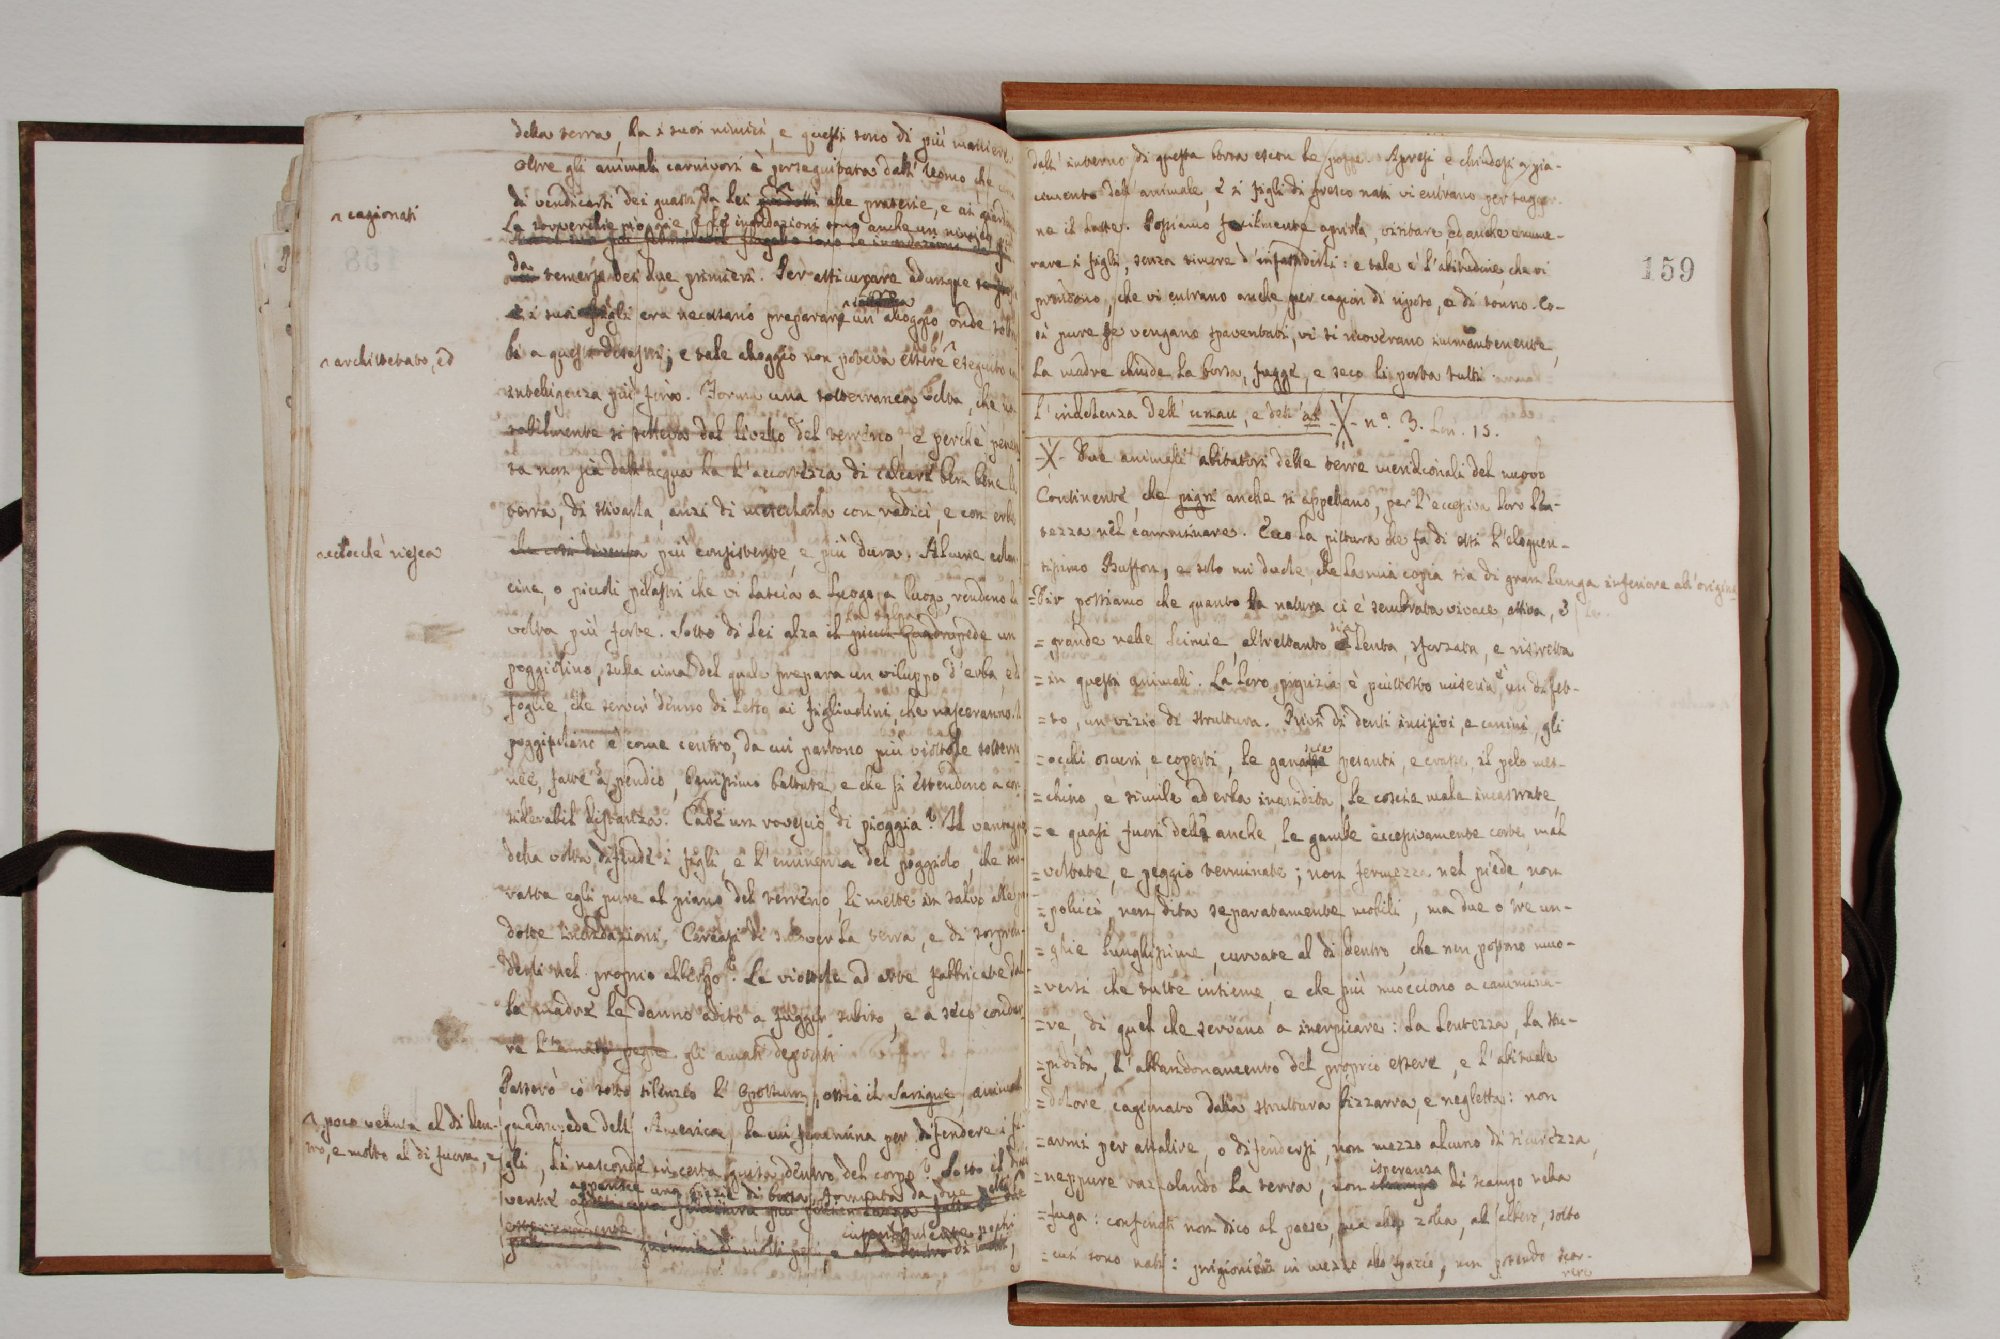 della terra, ha i suoi nimici, e questi sono di più maniere.
Oltre gli animali carnivori è perseguitata dall' Uomo che
^ cagionati
di vendicarsi dei guasti da lei alle praterie, e ai
Le soverchie piogge, e le inondazioni sono anche un nimico
da temersi dei due primieri. Per assicurare adunque
e i suoi figli era necessario preparare un alloggio, onde
^ architettato, ed
li a questi disastri; e tale aloggio non poteva essere ^ eseguito
intelligenza più fina. Forma una sotterranea volta, che
tabilmente si solleva dal livello del terreno, e perchè
ta non sia dall' acqua ha l' accortezza di calcare ben bene la
terra, di stivarla, anzi di mescolarla con radici, e con erbe
^ ciocchè riesca
più consistente, e più dura. Alcune colon-
cine, o piccoli pilastri che vi lascia a luogo, a luogo, rendono la
La talpa
volta più forte. Sotto di lei alza il picciol quadrupede un
poggiolino, sulla cima del quale prepara un viluppo d' erba, e di
foglie, che servir denno di letto ai figliuolini, che nasceranno. Il
poggiolino è come centro, da cui partono più viottole sotterra-
nee, fatte a pendio, benissimo battute, e che si estendono a con-
siderabil distanza. Cade un rovescio di pioggia? Il
della volta difende i figli, e l' eminenza del poggiolo, che
vasta egli pure al piano del terreno, li mette in salvo alle
dotte inondazioni. Cercasi di smover la terra, e di sorpren-
derli nel proprio albergo? Le viottole ad arte fabbricate dal-
la madre le danno adito a fuggir subito, e a seco condur-
re gli amati depositi
Passerò io sotto silenzio l' opossum, ossia il Sarigue, animal
^ poco veluta al di den-
tro, e molto al di fuora,
quadrupede dell' America, la cui femmina per difendere i fi-
gli, li nasconde in certa guisa dentro del corpo? Sotto il
ventre apparisce una spezie di borsa formata da due pelli
159
dall' interno di questa borsa escon le poppe. Apresi, e chiudesi a pia-
cimento dell' animale, e i figli di fresco nati vi entrano per sugger-
ne il latte. Possiamo facilmente aprirla, visitare, ed anche nume-
rare i figli, senza timore d' infastidirli: e tale è l' abitudine, che vi
prendono, che vi entrano anche per cagion di riposo, e di sonno. Co-
sì pure se vengano spaventati, vi si ricoverano immantenente,
La madre chiude la borsa, fugge, e seco li porta tutti.
L' indolenza dell' unau, e dell' aì -X- n.° 3. Lon. 15.
-X- Due animali abitatori delle terre meridionali del nuovo
Continente, che pigri anche si appellano, per l' eccessiva loro len-
tezza nel camminare. Ecco la pittura che fa di essi l' eloquen-
tissimo Buffon, e solo mi duole, che la mia copia sia di gran lunga inferiore all' original
=Dir possiamo che quanto la natura ci è sembrata vivace, attiva, e
= grande nelle Scimie, altrettanto è lenta, sforzata, e ristretta
= in questi animali. La loro pigrizia è piuttosto miseria, è un difet-
= to, un vizio di struttura. Privi di denti incisivi, e canini, gli
= occhi oscuri, e coperti, le ganasce pesanti, e grosse, il pelo mes-
= chino, e simile ad erba inaridita, le coscie male incastrate,
= e quasi fuori delle anche, le gambe eccessivamente corte, mal
= voltate, e peggio terminate; non fermezza nel piede, non
= pollici, non dita separatamente mobili, ma due o tre un-
= ghie lunghissime, curvate al di dentro, che non possono muo-
= versi che tutte insieme, e che più nuocciono a cammina-
=re, di quel che servano a inerpicare: La lentezza, la stu-
=pidità, l' abbandonamento del proprio essere, e l' abituale
=dolore, cagionato dalla struttura bizzarra, e negletta: non
=armi per assalire, o difendersi, non mezzo alcuno di sicurezza,
=neppure razzolando la terra, non speranza di scampo nella
=fuga: confinati non dico al paese, ma alla zolla, all' albero, sotto
=cui sono nati: prigionieri in mezzo allo spazio, non potendo scor-
rere